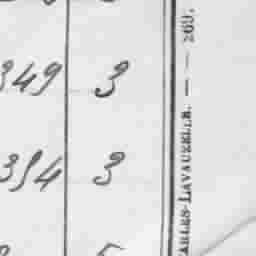 349 3
394 3
ARLES-LAVAUZELLE. — — 269.